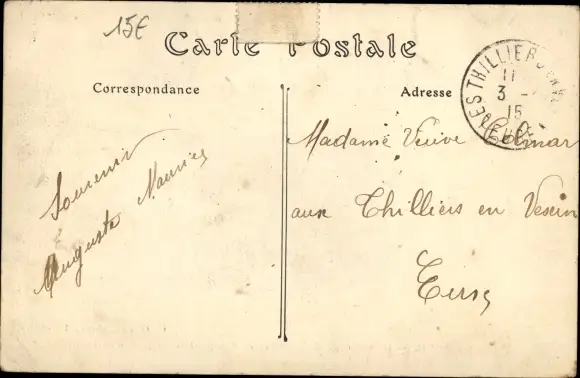 15€
Carte Postale
Correspondance
Adresse
LES THILLIERS
11
3 -
15
EURE
Souvenir
Auguste Maurice
Madame Veuve Colmar
aux Thilliers en Vexin
Eure